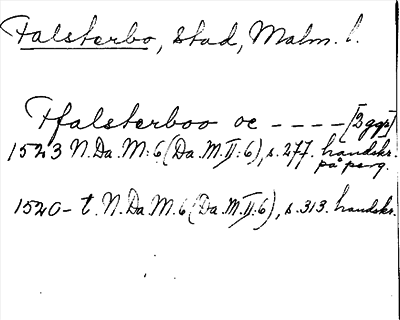 Falsterbo, stad, Malm. l.
Ffalsterboo oc - - - - [2 ggr]
1523 N. Da. M: 6 (Da. M. II: 6), s. 277. handskr.
på perg.
1520- t. N. Da. M. 6 (Da. M. II: 6), s. 313. handskr.